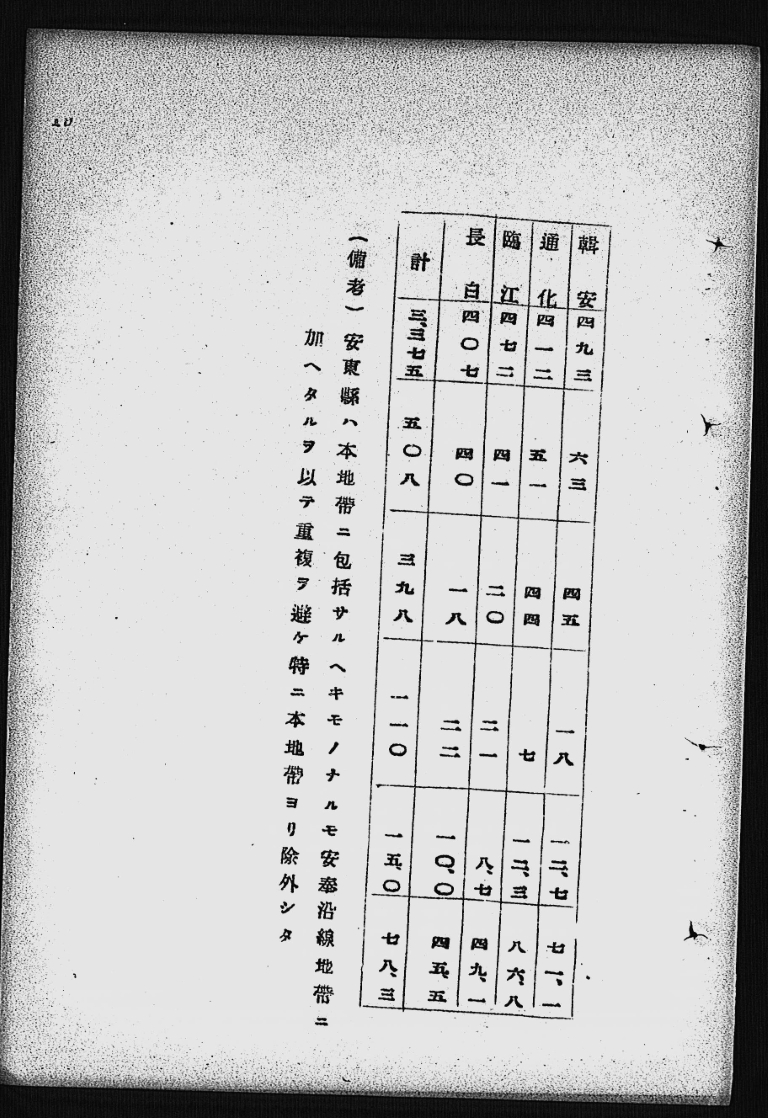 輯安 四九三 六三 四五 一八 一二、七 七一、一
通化 四一二 五一 四四 七 一二、三 八六、八
臨江 四七二 四一 二〇 二一 八、七 四九、一
長白 四〇七 四〇 一八 二二 一〇、〇 四五、五
計 三、三七五 五〇八 三九八 一一〇 一五、〇 七八、三
(備考) 安東縣ハ本地帶ニ包括サルヘキモノナルモ安奉沿線地帶ニ
加ヘタルヲ以テ重複ヲ避ケ特ニ本地帶ヨリ除外シタ